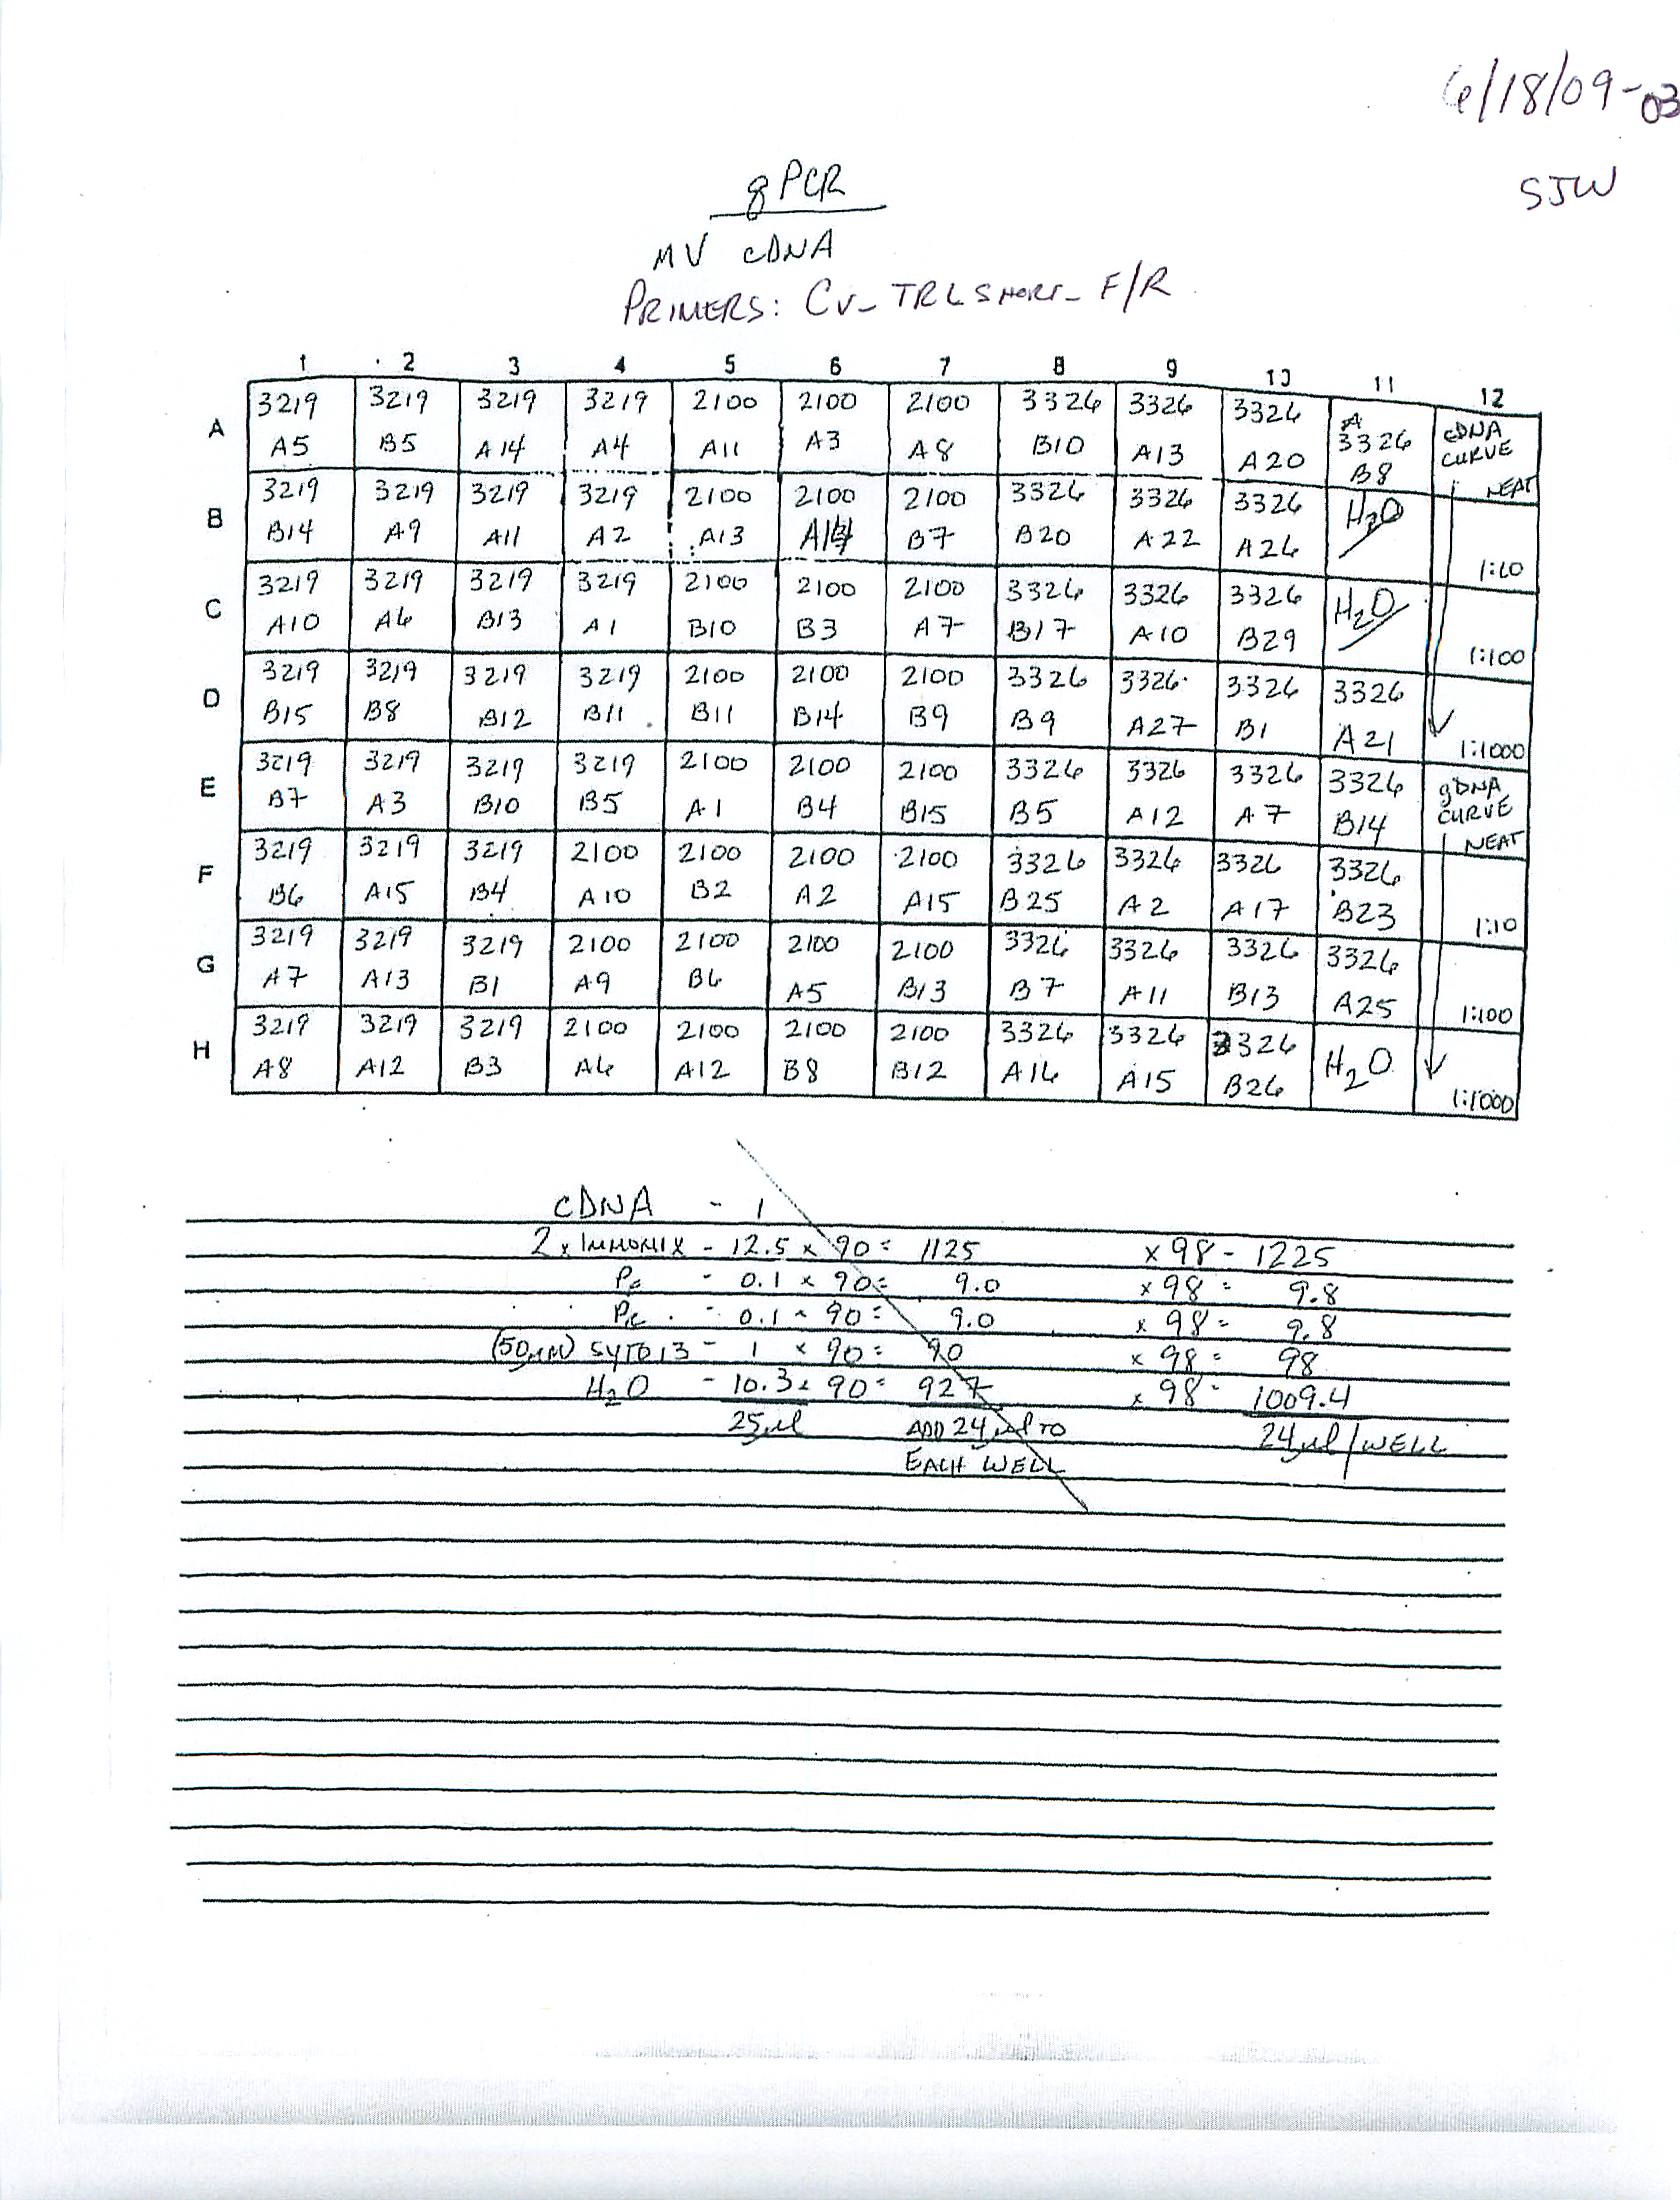 6/18/09-03
SJW
qPCR
MV cDNA
PRIMERS: Cv_TRLSHORT_F/R
1 2 3 4 5 6 7 8 9 10 11 12
A 3219 3219 3219 3219 2100 2100 2100 3326 3326 3326 3326 cDNA CURVE
A5 B5 A14 A4 A11 A3 A8 B10 A13 A20 B8 NEAT
B 3219 3219 3219 3219 2100 2100 2100 3326 3326 3326 H2O
B14 A9 A11 A2 A13 B7 B20 A22 A26 1:10
C 3219 3219 3219 3219 2100 2100 2100 3326 3326 3326 H2O
A10 A6 B13 A1 B10 B3 A7 B17 A10 B29 1:100
D 3219 3219 3219 3219 2100 2100 2100 3326 3326 3326 3326
B15 B8 B12 B11 B11 B14 B9 B9 A27 B1 A21 1:1000
E 3219 3219 3219 3219 2100 2100 2100 3326 3326 3326 3326 gDNA CURVE
B7 A3 B10 B5 A1 B4 B15 B5 A12 A7 B14 NEAT
F 3219 3219 3219 2100 2100 2100 2100 3326 3326 3326 3326
B6 A15 B4 A10 B2 A2 A15 B25 A2 A17 B23 1:10
G 3219 3219 3219 2100 2100 2100 2100 3326 3326 3326 3326
A7 A13 B1 A9 B6 A5 B13 B7 A11 B13 A25 1:100
H 3219 3219 3219 2100 2100 2100 2100 3326 3326 3326 H2O
A8 A12 B3 A6 A12 B8 B12 A16 A15 B26 1:1000
cDNA - 1
2x IMMOMIX - 12.5 x 90 = 1125 x 98 - 1225
- 0.1 x 90 = 9.0 x 98 = 9.8
- 0.1 x 90 = 9.0 x 98 = 9.8
(50µM) SYTO13 - 1 x 90 = 90 x 98 = 98
H2O - 10.3 x 90 = 927 x 98 - 1009.4
25µl ADD 24µl TO 24µl/WELL
EACH WELL